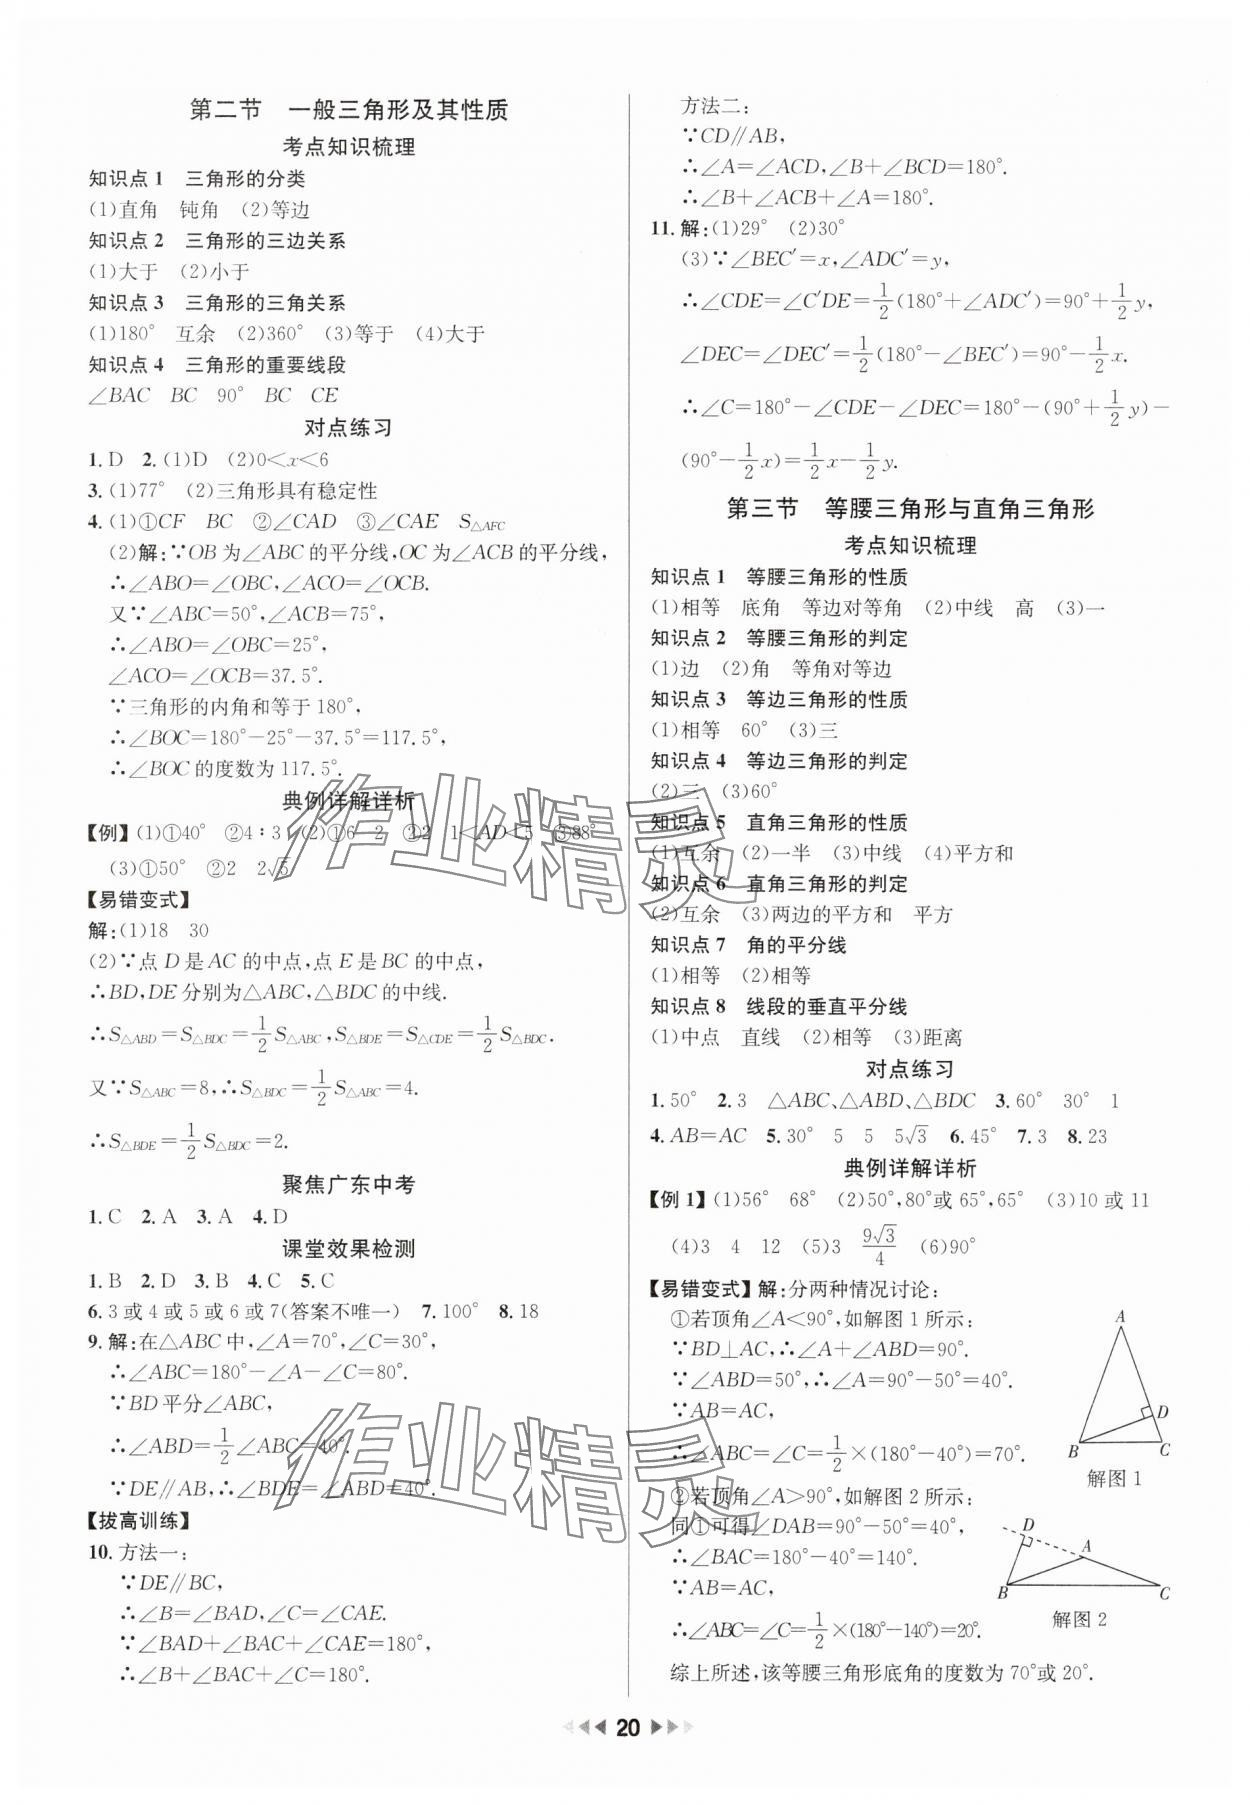 第二节 一般三角形及其性质
考点知识梳理
知识点1 三角形的分类
(1)直角 钝角 (2)等边
知识点2 三角形的三边关系
(1)大于 (2)小于
知识点3 三角形的三角关系
(1)180° 互余 (2)360° (3)等于 (4)大于
知识点4 三角形的重要线段
∠BAC BC 90° BC CE
对点练习
1.D 2.(1)D (2)0<x<6
3.(1)77° (2)三角形具有稳定性
4.(1)①CF BC ②∠CAD ③∠CAE S△AFC
(2)解:∵OB为∠ABC的平分线,OC为∠ACB的平分线,
∴∠ABO=∠OBC,∠ACO=∠OCB.
又∵∠ABC=50°,∠ACB=75°,
∴∠ABO=∠OBC=25°,
∠ACO=∠OCB=37.5°.
∵三角形的内角和等于180°,
∴∠BOC=180°-25°-37.5°=117.5°,
∴∠BOC的度数为117.5°.
典例详解详析
【例】(1)①40° ②4∶3 (2)①6 2 ②2 1<AD<5 ③88°
(3)①50° ②2 2√5
【易错变式】
解:(1)18 30
(2)∵点D是AC的中点,点E是BC的中点,
∴BD,DE分别为△ABC,△BDC的中线.
∴S△ABD=S△BDC=1/2 S△ABC,S△BDE=S△CDE=1/2 S△BDC.
又∵S△ABC=8,∴S△BDC=1/2 S△ABC=4.
∴S△BDE=1/2 S△BDC=2.
聚焦广东中考
1.C 2.A 3.A 4.D
课堂效果检测
1.B 2.D 3.B 4.C 5.C
6.3或4或5或6或7(答案不唯一) 7.100° 8.18
9.解:在△ABC中,∠A=70°,∠C=30°,
∴∠ABC=180°-∠A-∠C=80°.
∵BD平分∠ABC,
∴∠ABD=1/2∠ABC=40°.
∵DE∥AB,∴∠BDE=∠ABD=40°.
【拔高训练】
10.方法一:
∵DE∥BC,
∴∠B=∠BAD,∠C=∠CAE.
∵∠BAD+∠BAC+∠CAE=180°,
∴∠B+∠BAC+∠C=180°.
方法二:
∵CD∥AB,
∴∠A=∠ACD,∠B+∠BCD=180°.
∴∠B+∠ACB+∠A=180°.
11.解:(1)29° (2)30°
(3)∵∠BEC′=x,∠ADC′=y,
∴∠CDE=∠C′DE=1/2(180°+∠ADC′)=90°+1/2 y,
∠DEC=∠DEC′=1/2(180°-∠BEC′)=90°-1/2 x.
∴∠C=180°-∠CDE-∠DEC=180°-(90°+1/2 y)-
(90°-1/2 x)=1/2 x-1/2 y.
第三节 等腰三角形与直角三角形
考点知识梳理
知识点1 等腰三角形的性质
(1)相等 底角 等边对等角 (2)中线 高 (3)一
知识点2 等腰三角形的判定
(1)边 (2)角 等角对等边
知识点3 等边三角形的性质
(1)相等 60° (3)三
知识点4 等边三角形的判定
(2)三 (3)60°
知识点5 直角三角形的性质
(1)互余 (2)一半 (3)中线 (4)平方和
知识点6 直角三角形的判定
(2)互余 (3)两边的平方和 平方
知识点7 角的平分线
(1)相等 (2)相等
知识点8 线段的垂直平分线
(1)中点 直线 (2)相等 (3)距离
对点练习
1.50° 2.3 △ABC、△ABD、△BDC 3.60° 30° 1
4.AB=AC 5.30° 5 5 5√3 6.45° 7.3 8.23
典例详解详析
【例1】(1)56° 68° (2)50°,80°或65°,65° (3)10或11
(4)3 4 12 (5)3 9√3/4 (6)90°
【易错变式】解:分两种情况讨论:
①若顶角∠A<90°,如解图1所示:
∵BD⊥AC,∴∠A+∠ABD=90°.
∵∠ABD=50°,∴∠A=90°-50°=40°.
∵AB=AC,
∴∠ABC=∠C=1/2×(180°-40°)=70°.
A
D
B
C
解图1
②若顶角∠A>90°,如解图2所示:
同①可得∠DAB=90°-50°=40°,
∴∠BAC=180°-40°=140°.
∵AB=AC,
∴∠ABC=∠C=1/2×(180°-140°)=20°.
D
A
B
C
解图2
综上所述,该等腰三角形底角的度数为70°或20°.
20
作业精灵
作业精灵